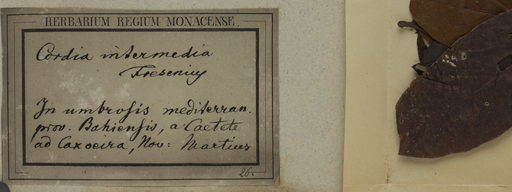 HERBARIUM REGIUM MONACENSE.
Cordia intermedia
Fresenius
In umbrosis mediterran.
prov. Bahiensis, a Caeteté
ad Caxoeira, Nov: Martius
26.